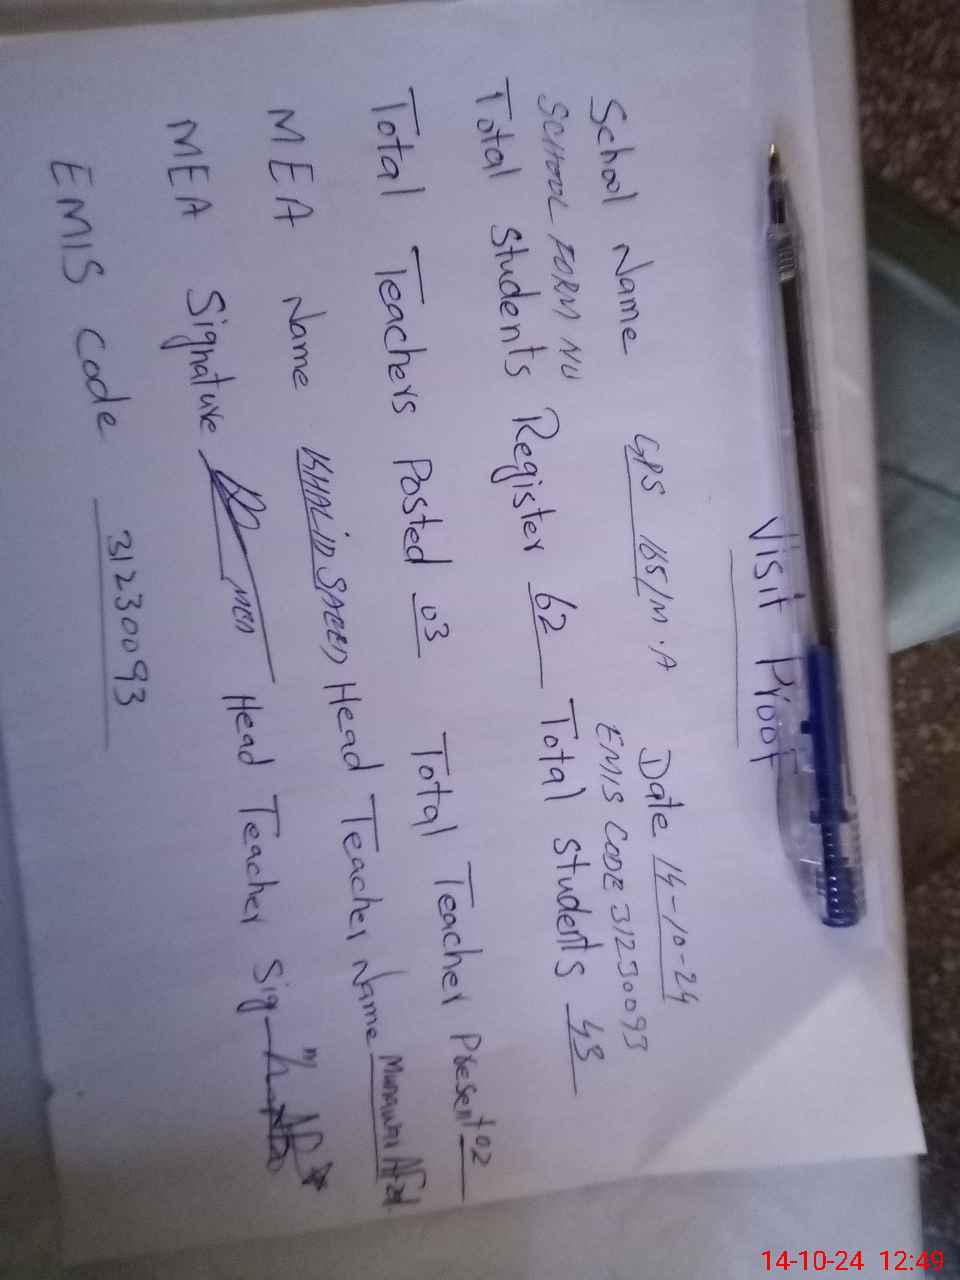 Visit Proof
School Name GPS 165/M.A Date 14-10-24
SCHOOL FORM NO EMIS CODE 31230093
Total Students Register 62 Total Students 43
Total Teachers Posted 03 Total Teacher Present 02
MEA Name KHALID SAEED Head Teacher Name Munawar
MEA Signature MEA Head Teacher Sig
EMIS Code 31230093
14-10-24 12:49